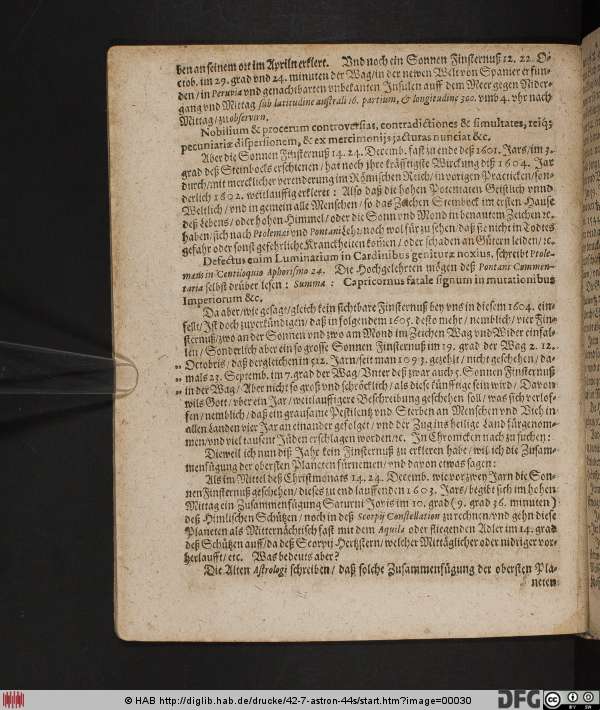 ben an seinem ort im Apriln erklert. Vnd noch ein Sonnen Finsternuß 12. 22. O-
ctob. im 29. grad vnd 24. minuten der Wag/ in der newen Welt von Spanier erfun-
den/ in Peruvia vnd genachtbarten vnbekanten Insulen auff dem Meer gegen Nider-
gang vnd Mittag sub latitudine australi 16. partium, & longitudine 300. vmb 4. vhr nach
Mittag/ zu observirn.
Nobilium & procerum controversias, contradictiones & simultates, reiq;
pecuniariæ dispersionem, & ex mercimonijs jacturas nunciat &c.
Aber die Sonnen Finsternuß 14. 24. Decemb. fast zu ende deß 1601. Jars/ im 3.
grad deß Steinbocks erschienen/ hat noch jhre kräfftigste Wirckung diß 1604. Jar
durch/ mit mercklicher verenderung im Römischen Reich/ in vorigen Practicken/ son-
derlich 1602. weitleufftig erkleret: Also daß die hohen Potentaten Geistlich vnnd
Weltlich/ vnd in gemein alle Menschen/ so das Zeichen Steinbock im ersten Hause
deß Lebens/ oder hohen Himmel/ oder die Sonn vnd Mond in benantem Zeichen ꝛc.
haben/ sich nach Ptolemæi vnd Pontani Lehr/ noch wol für zu sehen/ daß sie nicht in Todtes
gefahr oder sonst gefehrliche Kranckheiten kom̃en/ oder schaden an Gütern leiden/ ꝛc.
Defectus enim Luminarium in Cardinibus genituræ noxius, schreibt Ptole-
mæus in Centiloquio Aphorismo 24. Die Hochgelehrten mögen deß Pontani Commen-
taria selbst drüber lesen: Summa: Capricornus fatale signum in mutationibus
Imperiorum &c.
Da aber/ wie gesagt/ gleich kein sichtbare Finsternuß bey vns in diesem 1604. ein-
fellt/ Ist doch zu verkündigen/ daß in folgendem 1605. desto mehr/ nemblich/ vier Fin-
sternuß/ zwo an der Sonnen vnd zwo am Mond im Zeichen Wag vnd Wider einfal-
len/ Sonderlich aber ein so grosse Sonnen Finsternuß im 19. grad der Wag 2. 12.
„ Octobris/ daß dergleichen in 512. Jarn/ seit man 1093. gezehlt/ nicht geschehen/ da-
„ mals 23. Septemb. im 7. grad der Wag/ Vnter deß zwar auch 5. Sonnen Finsternuß
„ in der Wag/ Aber nicht so groß vnd schröcklich/ als diese künfftige sein wird/ Davon
wils Gott/ vber ein Jar/ weitleufftigere Beschreibung geschehen soll/ was sich verlof-
fen/ nemblich/ daß ein grausame Pestilentz vnd Sterben an Menschen vnd Vieh in
allen Landen vier Jar an einander gefolget/ vnd der Zug ins heilige Land fürgenom-
men/ vnd viel tausent Jüden erschlagen worden/ ꝛc. In Chronicken nach zu suchen:
Dieweil ich nun diß Jahr kein Finsternuß zu erkleren habe/ wil ich die Zusam-
menfügung der obersten Planeten fürnemen/ vnd davon etwas sagen:
Als im Mittel deß Christmonats 14. 24. Decemb. wie vor zwey Jarn die Son-
nen Finsternuß geschehen/ dieses zu end lauffenden 1603. Jars/ begibt sich im hohen
Mittag ein Zusammenfügung Saturni Jovis im 10. grad (9. grad 36. minuten)
deß Himlischen Schützen/ noch in deß Scorpij Constellation zu rechnen/ vnd gehn diese
Planeten als Mitternächtisch fast mit dem Aquila oder fliegenden Adler im 14. grad
deß Schützen auff/ da deß Scorpij Hertzstern/ welcher Mittäglicher oder nidriger vor-
herlaufft/ etc. Was bedeuts aber?
Die Alten Astrologi schreiben/ daß solche Zusammenfügung der obersten Pla-
neten
© HAB http://diglib.hab.de/drucke/42-7-astron-44s/start.htm?image=00030
DFG
cc
BY SA